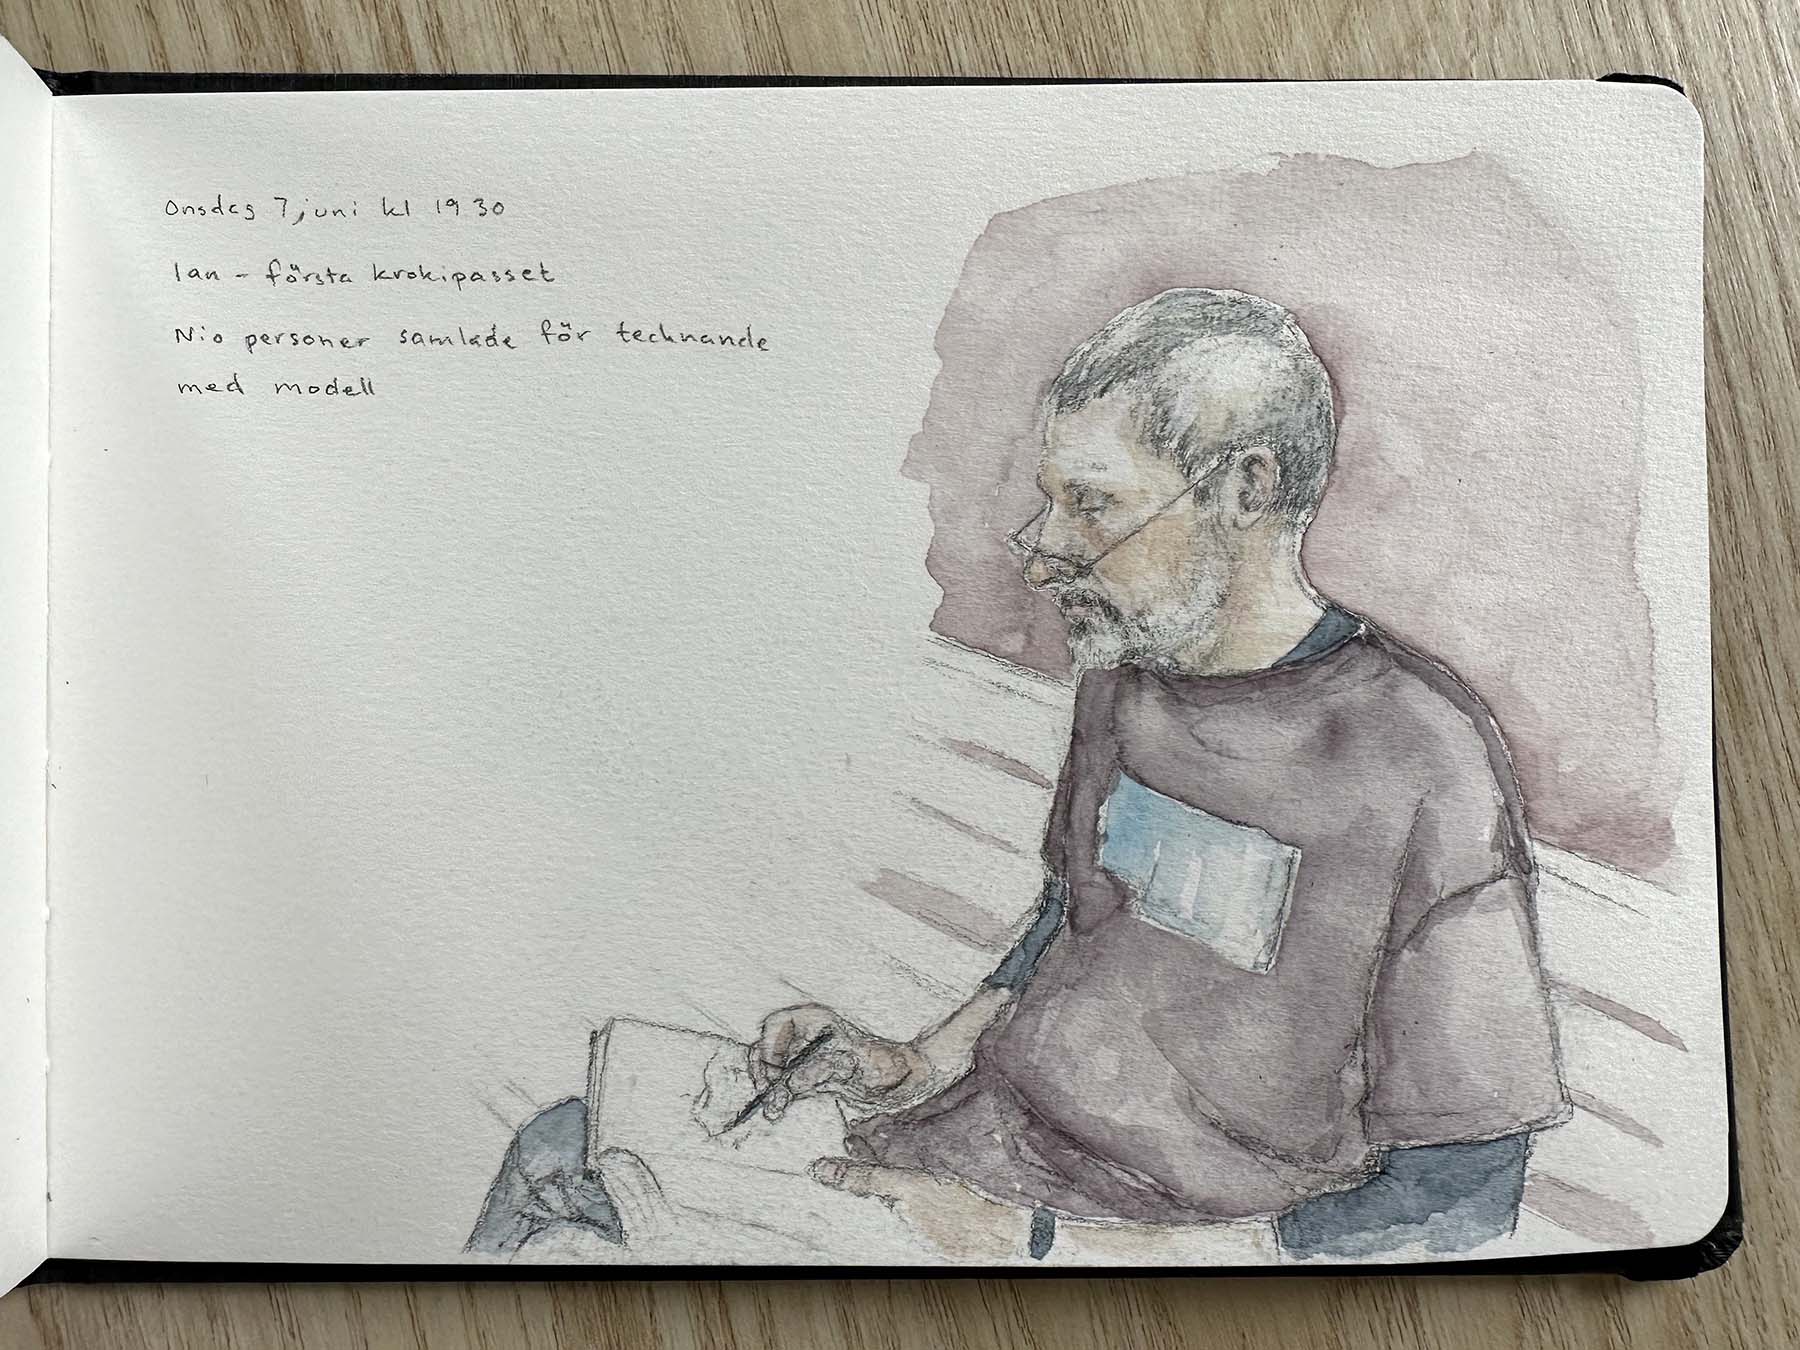 Onsdag 7 juni kl 19 30
Ian - första krokipasset
Nio personer samlade för tecknande
med modell